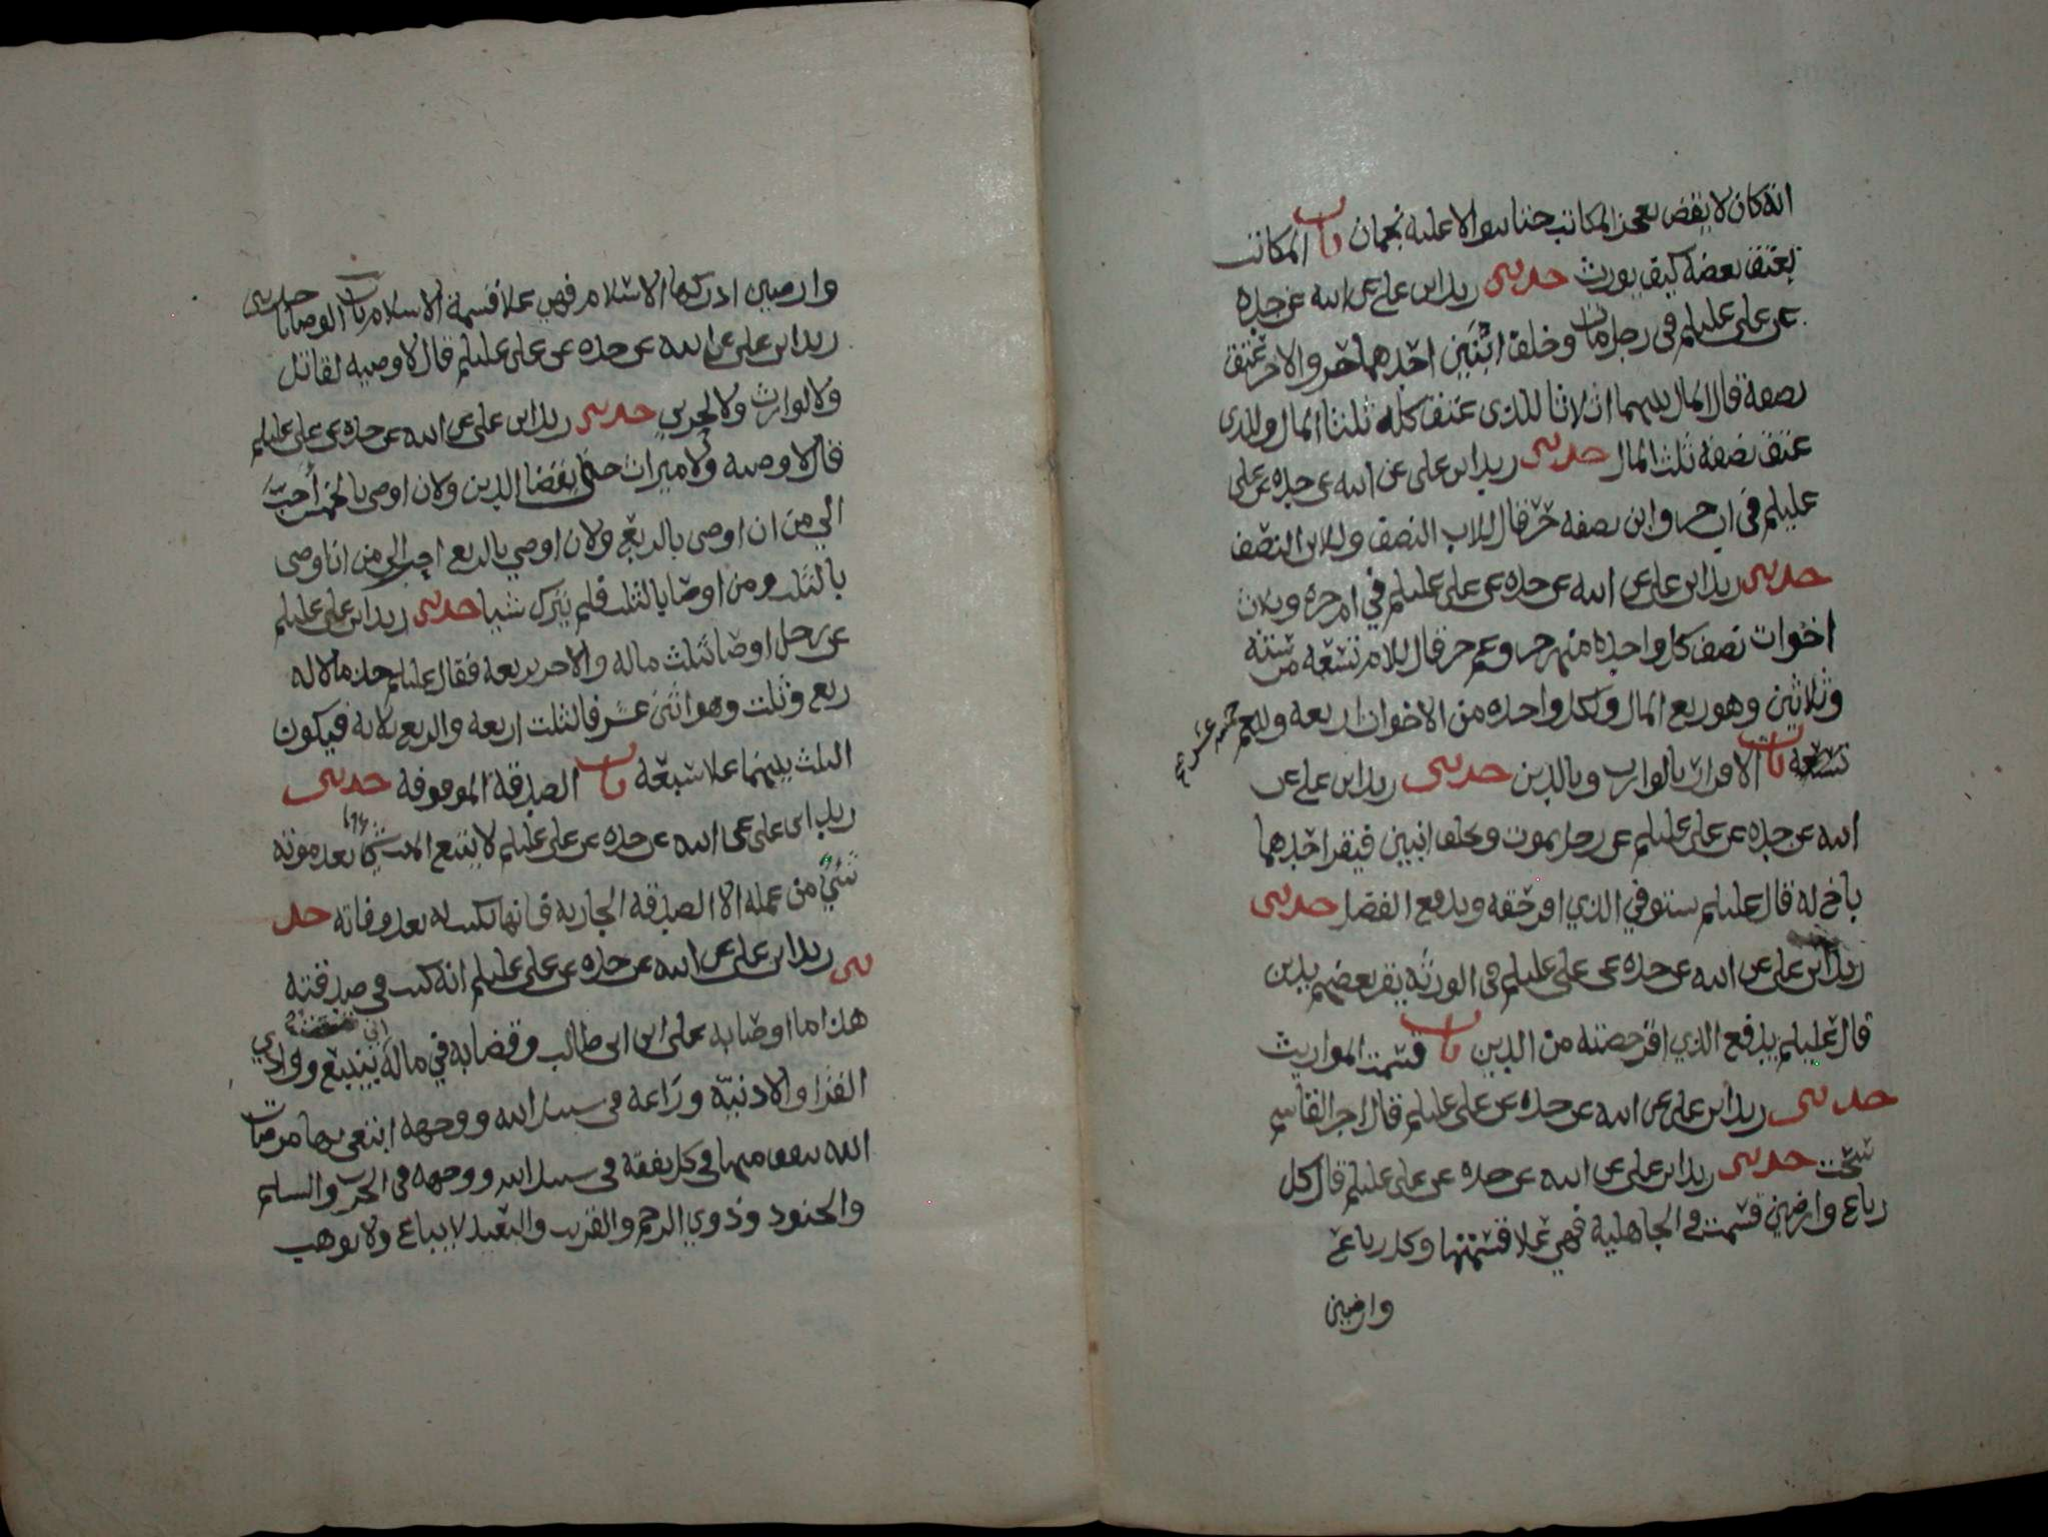 انه كان لا يقضي بعجز المكاتب حتا يتوالا عليه نجمان باب المكاتب
يعتق بعضه كيف يورث حدثني زيد ابن علي عن ابيه عن جده
عن علي عليلم في رجل مات وخلف ابنين احدهما حر والاخر عتق
نصفه قال المال بينهما اثلاثا للذي عتق كله ثلثا المال وللذي
عتق نصفه ثلث المال حدثني زيد ابن علي عن ابيه عن جده عن علي
عليلم في اب حر وابن نصفه حر قال للاب النصف وللابن النصف
حدثني زيد ابن علي عن ابيه عن جده عن علي عليلم في ام حره وثلاث
اخوات نصف كل واحده منهن حر وعم حر قال للام تسعه من سته
وثلاثين وهو ربع المال ولكل واحده من الاخوات اربعه وللعم خمسه عشر
تسعه باب الاقرار بالوارث وبالدين حدثني زيد ابن علي عن
ابيه عن جده عن علي عليلم عن رجل يموت ويخلف ابنين فيقر احدهما
باخ له قال عليلم يستوفي الذي اقر حقه ويدفع الفضل حدثني
زيد ابن علي عن ابيه عن جده عن علي عليلم في الورثه يقر بعضهم بدين
قال عليلم يدفع الذي اقر حصته من الدين باب قسمت المواريث
حدثني زيد ابن علي عن ابيه عن جده عن علي عليلم قال اجر القاسم
سحت حدثني زيد ابن علي عن ابيه عن جده عن علي عليلم قال كل
رباع وارضين قسمت في الجاهلية فهي علا قسمتها وكل رباع
وارضين
وارضين ادركها الاسلام فهي علا قسمة الاسلام باب الوصايا حدثني
زيد ابن علي عن ابيه عن جده عن علي عليلم قال لا وصيه لقاتل
ولا لوارث ولا لحربي حدثني زيد ابن علي عن ابيه عن جده عن علي عليلم
قال لا وصيه ولا ميراث حتى يقضا الدين ولان اوصي بالخمس أحب
الي من ان اوصي بالربع ولان اوصي بالربع احب الي من ان اوصي
بالثلث ومن اوصا بالثلث فلم يترك شيا حدثني زيد ابن علي عليلم
عن رجل اوصا بثلث ماله ولاخر بربعه فقال عليلم خذ مالا له
ربع وثلث وهو اثنى عشر فالثلث اربعه والربع ثلاثه فيكون
الثلث بينهما علا سبعه باب الصدقة الموقوفه حدثني
زيد ابن علي عن ابيه عن جده عن علي عليلم لا يتبع الميت بعد موته
شيء من عمله الا الصدقه الجاريه فانها تكتب له بعد وفاته حد
ثني زيد ابن علي عن ابيه عن جده عن علي عليلم انه كتب في صدقته
هذا ما اوصا به علي ابن ابي طالب وقضا به في ماله اني بينبع ووادي
القرا والاذنيه وراعه في سبيل الله ووجهه ابتغي بها مرضات
الله ينفق منها في كل نفقه في سبيل الله ووجهه في الحرب والسلم
والجنود وذوي الرحم والقريب والبعيد لا يباع ولا يوهب